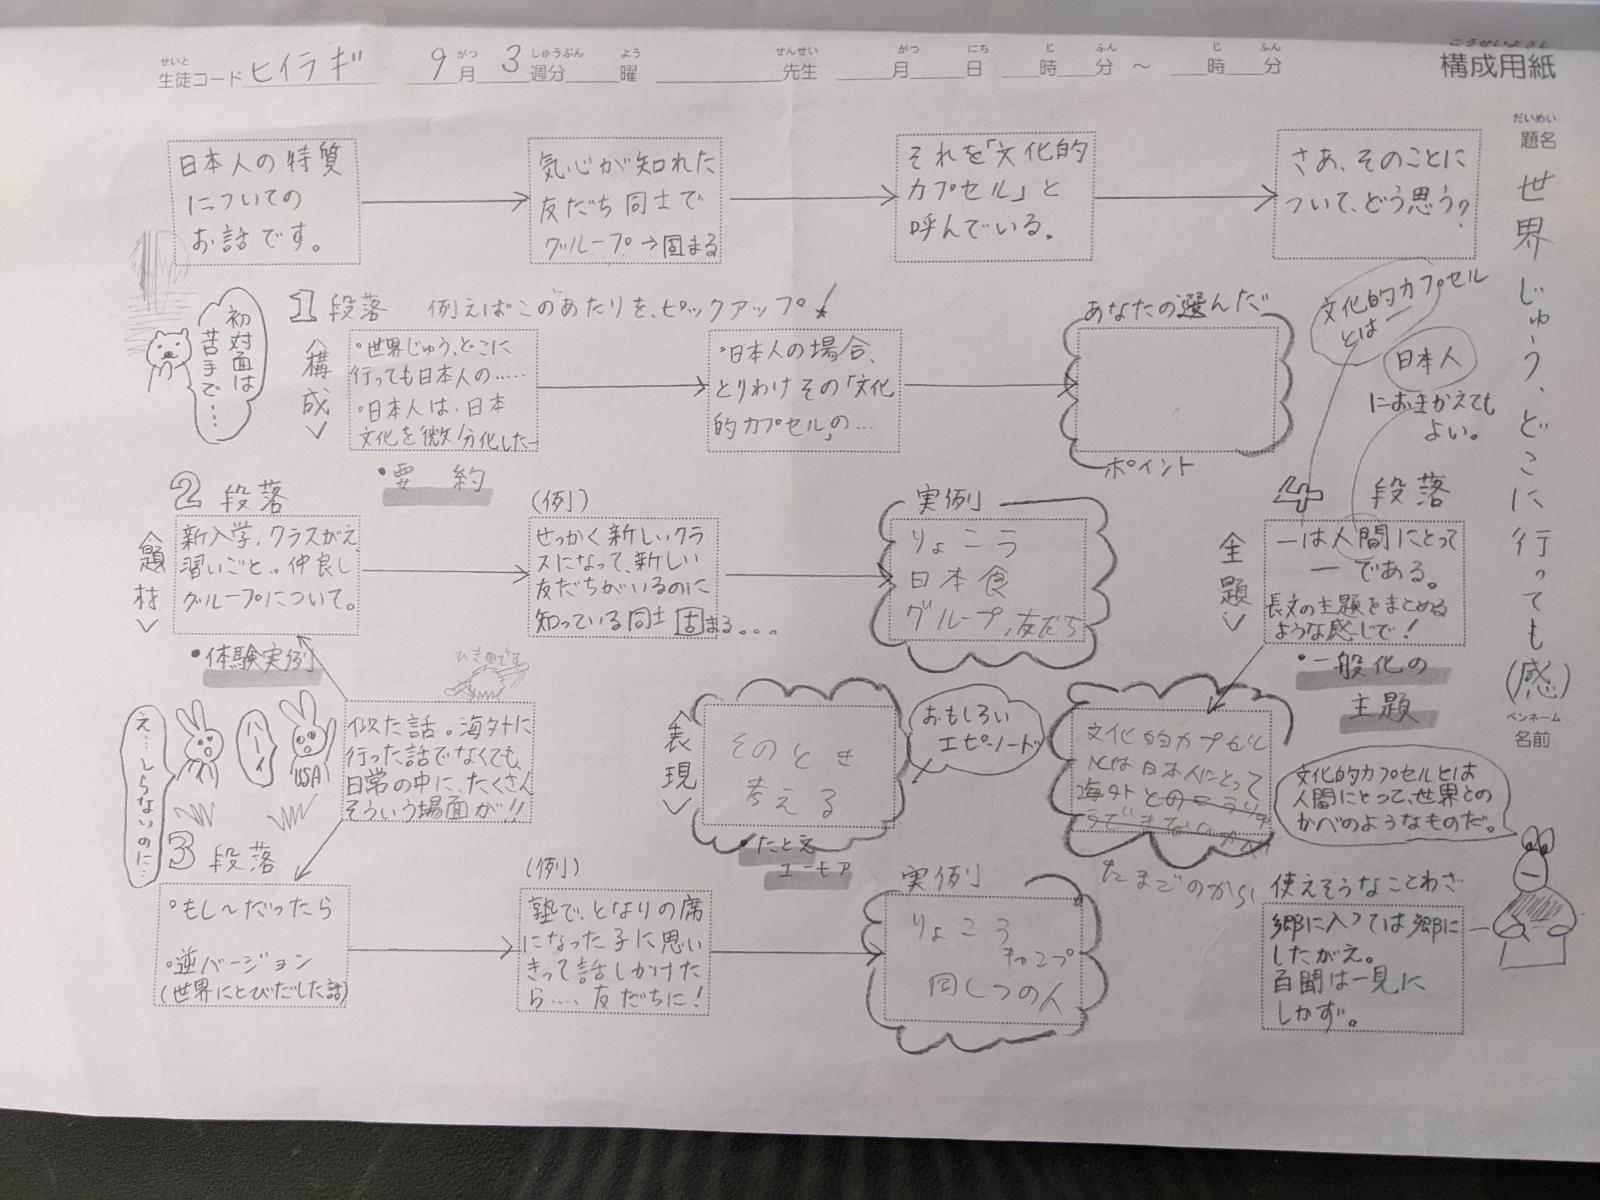 構成用紙
こうせいようし
せいと
生徒コード ヒイラギ
9月 3週分 曜 先生 月 日 時 分 ～ 時 分
がつ しゅうぶん よう せんせい がつ にち じ ふん じ ふん
だいめい
題名
世界じゅう、どこに行っても(感)
ペンネーム
名前
日本人の特質
についての
お話です。
気心が知れた
友だち同士で
グループ→固まる
それを「文化的
カプセル」と
呼んでいる。
さあ、そのことに
ついて、どう思う?
初対面は
苦手で…
1段落 例えばこのあたりを、ピックアップ!
〈構成〉
・世界じゅう、どこに
行っても日本人の……
・日本人は、日本
文化を微分化した―
・要約
・日本人の場合、
とりわけその「文化
的カプセル」の…
あなたの選んだ
ポイント
文化的カプセル
とは―
日本人
におきかえても
よい。
2段落
〈題材〉
新入学、クラスがえ、
習いごと…。仲良し
グループについて。
・体験実例
(例)
せっかく新しいクラ
スになって、新しい
友だちがいるのに
知っている同士固まる...
実例
りょこう
日本食
グループ、友だち
4段落
〈主題〉
―は人間にとって
―である。
長文の主題をまとめる
ような感じで!
・一般化の
主題
え…しらないのに…
ハーイ
USA
似た話。海外に
行った話でなくても、
日常の中に、たくさん
そういう場面が!!
〈表現〉
そのとき
考える
・たとえ
ユーモア
おもしろい
エピソード
文化的カプセル
とは日本人にとって
海外との
たまごのから
文化的カプセルとは
人間にとって、世界との
かべのようなものだ。
3段落
・もし～だったら
・逆バージョン
(世界にとびだした話)
(例)
塾で、となりの席
になった子に思い
きって話しかけた
ら…、友だちに!
実例
りょこう
キャンプ
同じつの人
使えそうなことわざ
郷に入っては郷に
したがえ。
百聞は一見に
しかず。